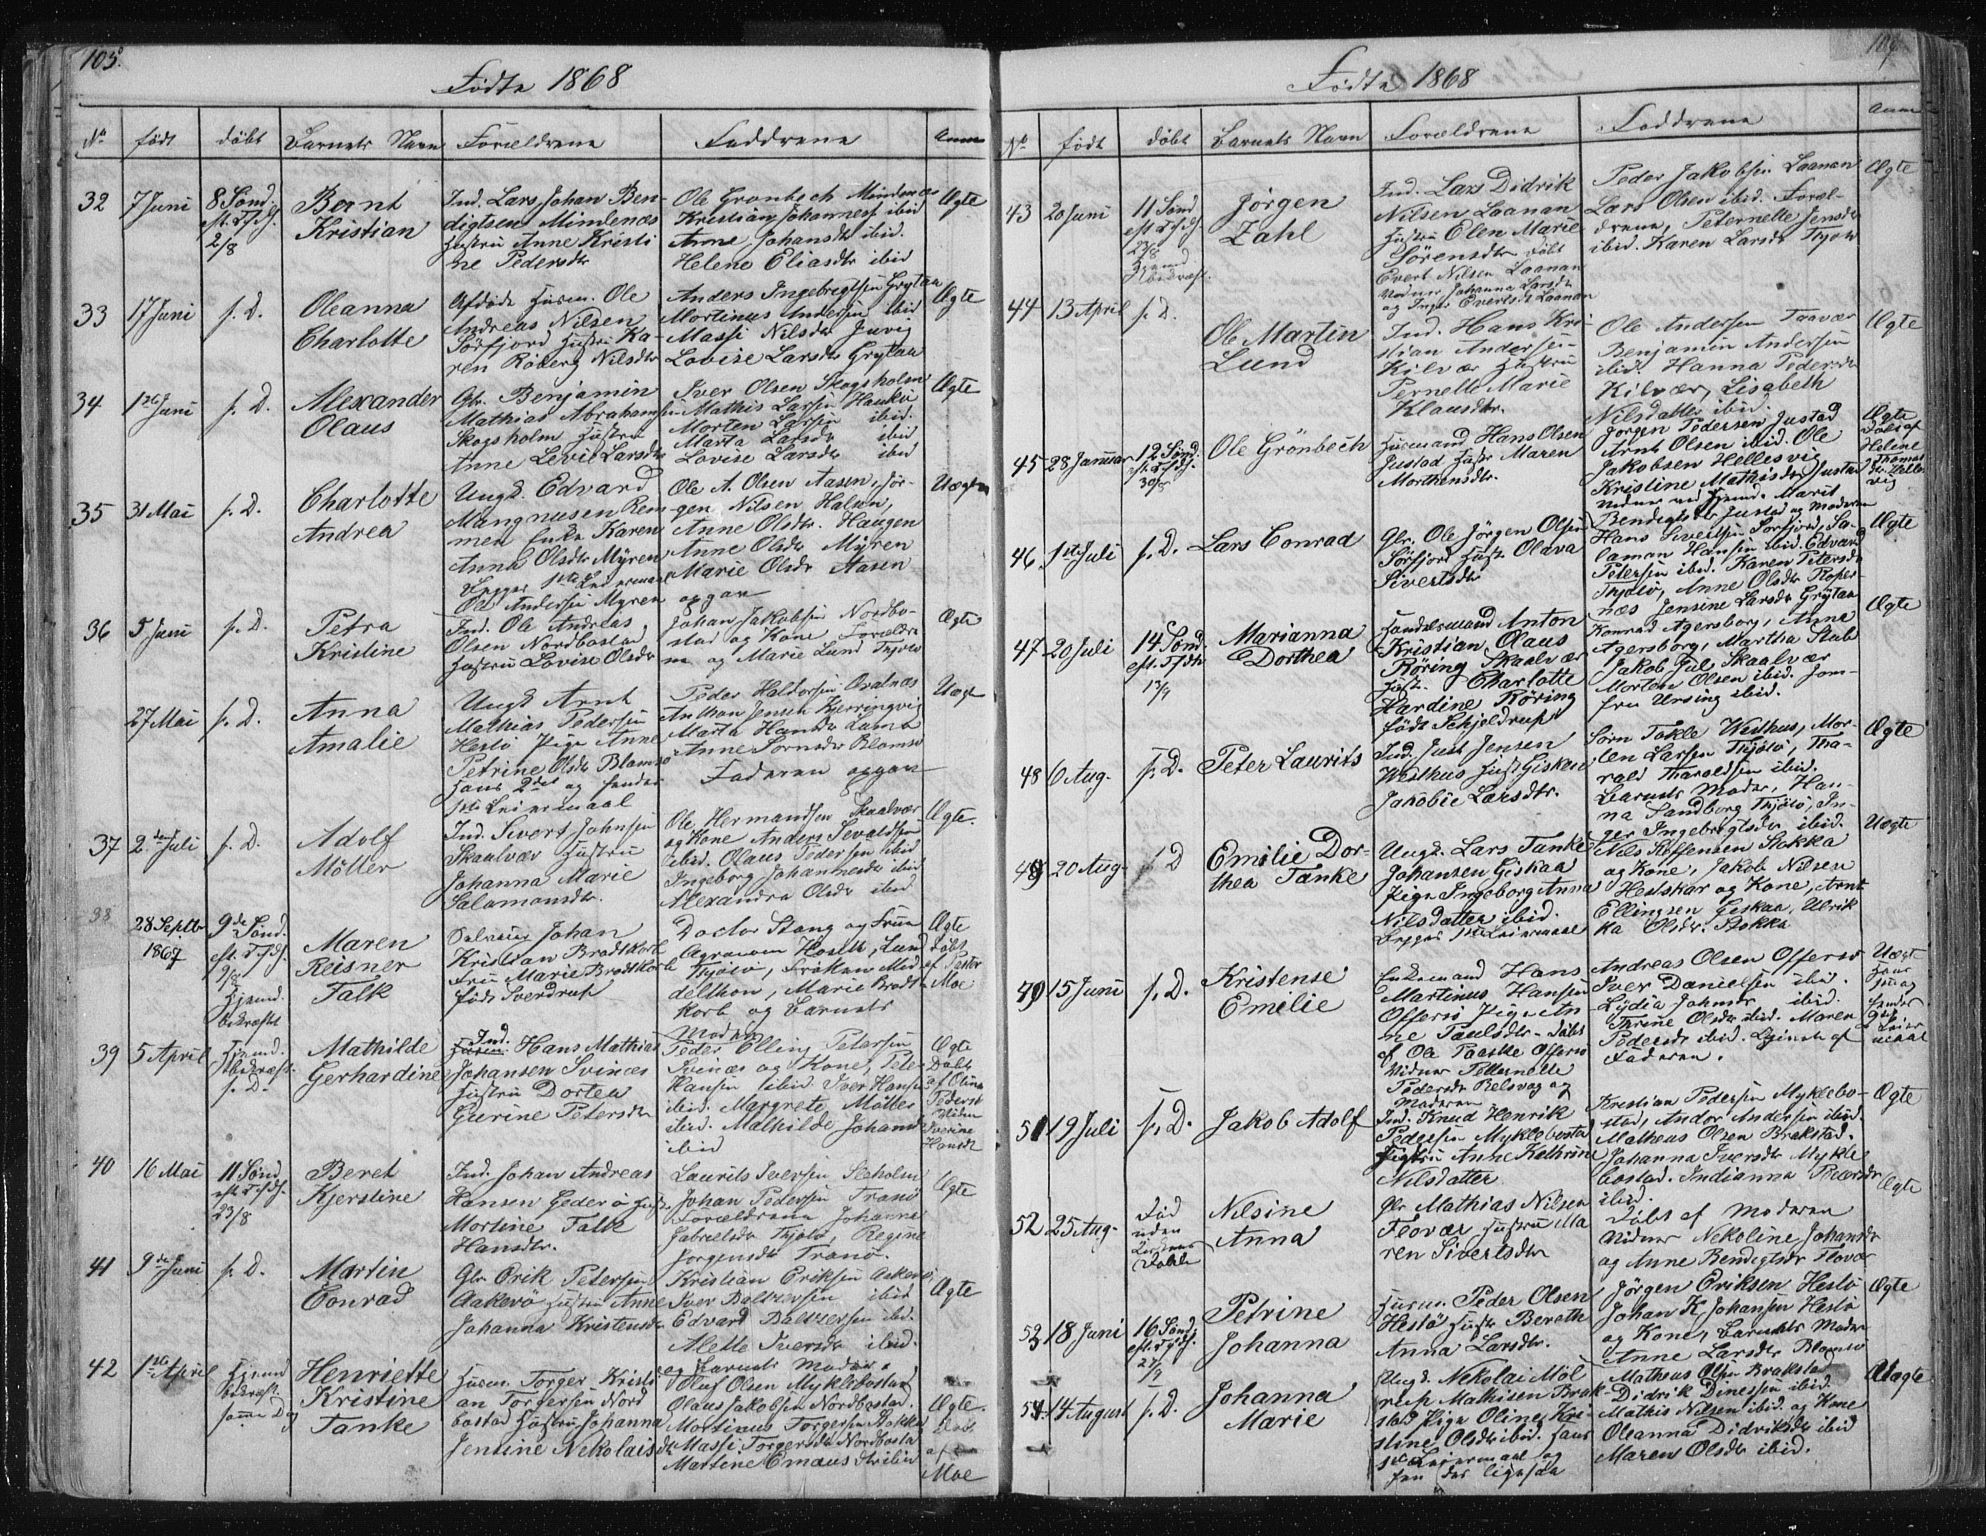 105.
Födte 1868
No födt döbt Barnets Navn Forældrene Faddrene Anm
32 7 Juni 8 Sönd. eft. Tfdf. 2/8
Bernt
Kristian
Ind. Lars Johan Ben-
digtsen Mindenæs
Hustru Anne Kristi
ne Pedersdtr
Ole Gronbech Mindenæs
Kristian Johannesen ibid
Anne Johansdtr ibid.
Helene Eliasdtr ibid
Ægte
33 17 Juni s. D.
Oleanna
Charlotte
Afdöde Husm. Ole
Andreas Nilsen
Sörfjord Hustru Ka-
ren Roberg Nilsdtr
Anders Ingebregtsen Grytaa
Martinus Andersen ibid
Massi Nilsdtr Juvig
Lovise Larsdtr Grytaa
Ægte
34 1ste Juni s. D.
Alexander
Olaus
Gbr. Benjamin
Mathias Abrahamsen
Skogsholm Hustru
Anne Levie Larsdtr
Iver Olsen Skogsholm
Mathis Larsen Haukö
Morten Larsen ibid.
Marta Larsdtr ibid
Lovise Larsdtr ibid
Ægte
35 31 Mai s. D.
Charlotte
Andrea
Ungk. Edvard
Mangnusen Rem
men Enke Karen
Anna Olsdtr Myren
Begges 1ste Leiermaal
Ole Andersen Myren opgav
Ole A. Olsen Aasen, Jör-
gen Nilsen Halsen,
Anne Olsdtr. Haugen
Anne Olsdtr Myren
Marie Olsdtr Aasen
Uægte
36 5 Juni s. D.
Petra
Kristine
Ind. Ole Andreas
Olsen Nordbostad
Hustru Lovise Olsdtr
Johan Jakobsen Nordbo-
stad og Kone, Forældre
ne og Marie Lund Thjotö
Ægte
27 Mai s. D.
Anna
Amalie
Ungk. Arnt
Mathias Pedersen
Hestö Pige Anne
Petrine Olsdtr Blomsö
hans 2det og hendes
1ste Leiermaal
Peder Haldorsen Ovalnæs
Anthon Jensen Kjerringvig
Marta Hansdtr
Anne Sörnsdtr Blomsö
Faderen opgav
Uægt
37 2.den Juli s. D.
Adolf
Möller
Ind. Sivert Johnsen
Skaalvær Hustru
Johanna Marie
Salamonsdtr.
Ole Hermandsen Skaalvær
og Kone Anders Sevaldsen
ibid. Olaus Pedersen ibid
Ingeborg Johannesdtr ibid
Alexandra Olsdtr ibid
Ægte.
38 28 Septbr 1867
9de Sönd. eft. Tfdf. 9/8 Hjemd. bekræftet
Maren
Reisner
Falk
Johan
Kristian Brodtkorb
Fru Marie Brodtkorb
föds Sverdrup
Doctor Stang og Frue
Agronom Hoseth, Lund
Thjotö, Fröken Mid
delthon, Marie Brodt
korb og Barnets
Moder
Ægte
Döbt
af Pastor
Moe
39 5 April Hjemd. bekræft. s. D.
Mathilde
Gerhardine
Ind. Hans Mathias
Johansen Svinæs
Hustru Dortea
Gurine Petersdtr
Peder Elling Petersen
Svinæs og Kone, Peter
Hansen ibid Iver Hansen
ibid. Margrete Möller
ibid. Mathilde Johansd
ibid
Ægte
Döbt
af Olina
Pederst
Vidne
Iverine
Hansdt
40 16 Mai 11 Sönd. eft. Tfdf. 23/8
Beret
Kjerstine
Ind. Johan Andreas
Hansen Gederö Hustru
Mortine Falk
Hansdtr.
Laurits Iversen Sæholm
Johan Pedersen Tranö
Forældrene Johanne
Gabrielsdtr Thjotö, Regine
Jorgensdtr Tranö.
Ægte
41 9de Juni s. D.
Martin
Conrad
Gbr Erik Petersen
Aakerö Hustru Anne
Johanna Kristensdtr
Kristian Eriksen Aakerö
Iver Baltzersen ibid
Edvard Baltzersen ibid.
Alette Iversdtr ibid.
og Barnets Moder.
Ægte
42 1ste April Hjemd bekræft. samme Dag
Henriette
Kristine
Tanke
Husm. Torger Kristi
an Torgersen Nord
bostad Hustru Johanna
Jensine Nekolaisdtr
Oluf Olsen Myklebostad
Olaus Jakobsen Nordbostad.
Martinus Torgersen Stokka
Massi Torgersdtr Nordbosta
Martine Emausdtr ibid
Ægte.
Döbt
af
Moe
Födte 1868
No födt döbt Barnets Navn Forældrene Faddrene Anm
43 20 Juni 11 Sönd eft Tfdf. 23/8 Hjemd bekræft.
Jörgen
Zahl
Ind. Lars Didrik
Nilsen Laanan
Hustru Elen Marie
Sörensdtr döbt
Evert Nilsen Laanan
Vidner Johanna Larsdtr
og Inger Evertsdtr Laanan
Peder Jakobsen Laanan
Lars Olsen ibid. Foræl-
drene, Peternelle Jensdtr
ibid. Karen Larsdtr Thjotö
Ægte
44 13 April s. D.
Ole Martin
Lund
Ind. Hans Kri-
stian Andersen
Kilvær Hustru
Pernelle Marie
Klausdtr.
Ole Andersen Traavær
Benjamin Andersen
ibid. Hanna Pedersdtr
Kilvær, Lisabeth
Nilsdatter ibid.
Ægte
45 28 Januar 12 Sönd. eft. Tfdf. 30/8
Ole Grönbech
Husmand Hans Olsen
Justad Hustr Maren
Morthensdtr.
Jörgen Pedersen Justad
Arnt Olsen ibid. Ole
Jakobsen Hellesvig
Kristine Mathisdtr Justad
Vidner ved Hjemd. Marit
Bendigtsdtr Justad og Moderen
Ægte
Döbt af
Heline
Thomas
dtr Helles
vig
46 1ste Juli s. D.
Lars Conrad
Gbr. Ole Jörgen Olsen
Sörfjord Hustr. Oldva
Sivertsdtr
Hans Sivertsen Sörfjord, Sa-
laman Hansen ibid. Edvard
Petersen ibid. Karen Petersdtr
Thjotö, Anne Olsdtr Roper-
næs Jensine Larsdtr Grytaa
Ægte
47 20 Juli 14 Sönd. eft. Tfdf 13/9
Marianna
Dorthea
Handelsmand Anton
Kristian Olaus
Röring Skaalvær
Hust. Charlotte
Hardine Röring
föds Schjeldrup
Konrad Agersborg, Anna
Agersborg, Martha Stub
Jakob Jul Skaalvær
Morten Olsen ibid. Jom-
fru Ursing ibid.
Ægte
48 6 Aug. s. D.
Peter Laurits
Ind. Just Jensen
Westhus Hust Gisken
Jakobie Larsdtr.
Sörn Tokle Westhus, Mor-
ten Larsen Thjotö, Tha-
rald Tharaldsen ibid.
Barnets Moder, Han-
na Sandborg Thjotö, In-
ger Ingebregtsdtr ibid.
Ægte
49 20 Aug. s D
Emilie Dor-
thea Tanke
Ungk. Lars Tanke
Johansen Giskaa
Pige Ingeborg Anna
Nilsdatter ibid.
Begges 1ste Leiermaal
Nils Steffensen Stokka
og Kone, Jakob Nilsen
Hestskar og Kone, Arnt
Ellingsen Giskaa, Ulrik
ka Olsdtr. Stokka
Uægte
15 Juni s. D.
Kristense
Emelie
Enkemand Hans
Martinus Hansen
Offersö Pige An
ne Paulsdtr. Döbt
af Ole Paaske Offersö
Vidner Petternelle
Pedersdtr Belsvaag og
Moderen
Andreas Olsen Offersö
Iver Danielsen ibid.
Lydia Johnsdtr ibid.
Thrine Olsdtr ibid. Maren
Pedersdtr ibid.
Faderen.
Uægt
51 19 Juli s. D.
Jakob Adolf
Ind. Knud Henrik
Pedersen Myklebosta
Hustru Anne Kathrine
Nilsdatter
Kristian Pedersen Myklebo-
stad, Andor Andersen ibid.
Matheus Olsen Brækstad.
Johanna Iversdtr Mykle
bostad. Indianna Peersdtr
ibid.
Ægte
52 25 Aug. Död uden
Nilsine
Anna
Gbr Mathias Nilsen
Flovær Hustru Ma
ren Sivertsdtr
Döbt af Moderen
Vidner Nekoline Johansdtr
og Anne Bendigtsdtr Flovær
Ægte
53 18 Juni 16 Sönd. eft. Tfdf. 27/9
Petrine
Johanna
Husm. Peder Olsen
Hestö Hustr Berethe
Anna Larsdtr.
Jörgen Eriksen Hestö
Johan K. Johansen Hestö
og Kone, Barnets Moder
Anne Larsdtr Blomsö
Ægte
54 14 August s. D.
Johanna
Marie
Ungk. Nekolai Möl
rup Mathisen Bræk-
stad Pige Oline Kri-
stine Olsdtr ibid. hans
1ste Leiermaal og
hendes ligesaa
Matheus Olsen Brækstad
Didrik Dinessen ibid
Mathis Nilsen ibid og Kone
Oleanna Didriksdtr ibid
Maren Olsdtr ibid.
Uægte